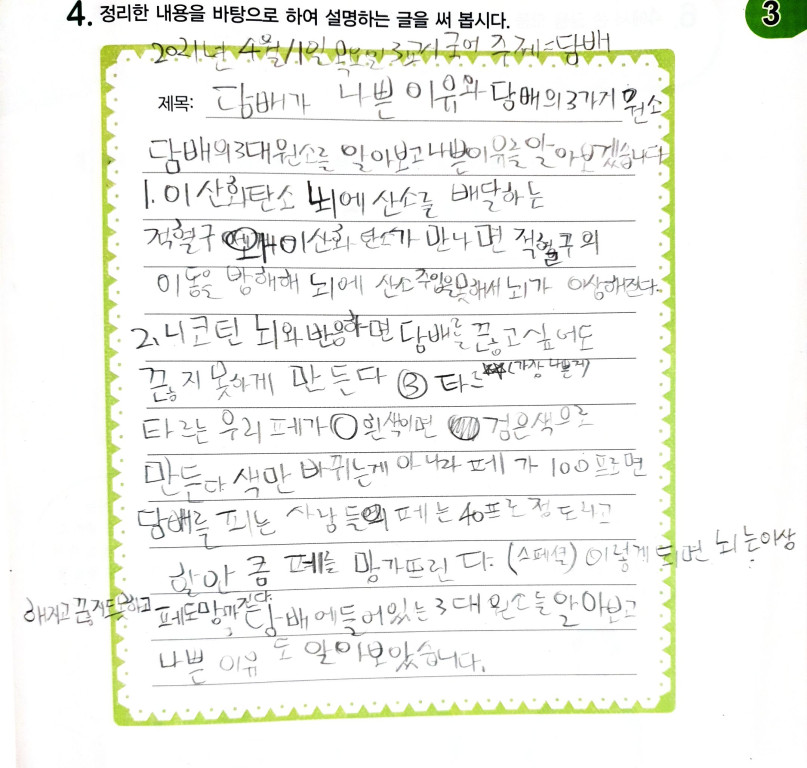 4. 정리한 내용을 바탕으로 하여 설명하는 글을 써 봅시다.
3
2021년 4월 1일 목요일 3교시 국어 주제=담배
제목: 담배가 나쁜 이유와 담배의 3가지 원소
담배의 3대 원소를 알아보고 나쁜이유를 알아보겠습니다
1. 이산화탄소 뇌에 산소를 배달하는
적혈구 이산화 탄소가 만나면 적혈구의
이동을 방해해 뇌에 산소주입을못해서 뇌가 이상해진다.
2. 니코틴 뇌와 반응하면 담배를 끊고 싶어도
끊지 못하게 만든다 ③ 타르 (가장 나쁜거)
타르는 우리 페가 흰색이면 검은색으로
만든다 색만 바뀌는게 아니라 페가 100프로면
담배를 피는 사람들의 페는 40프로 정도라고
할 만큼 페를 망가뜨린다. (스페셜) 이렇게 되면 뇌는이상
해지고 끊지도못하고 페도망가진다. 담배에들어있는 3대 원소를 알아보고
나쁜 이유도 알아보았습니다.